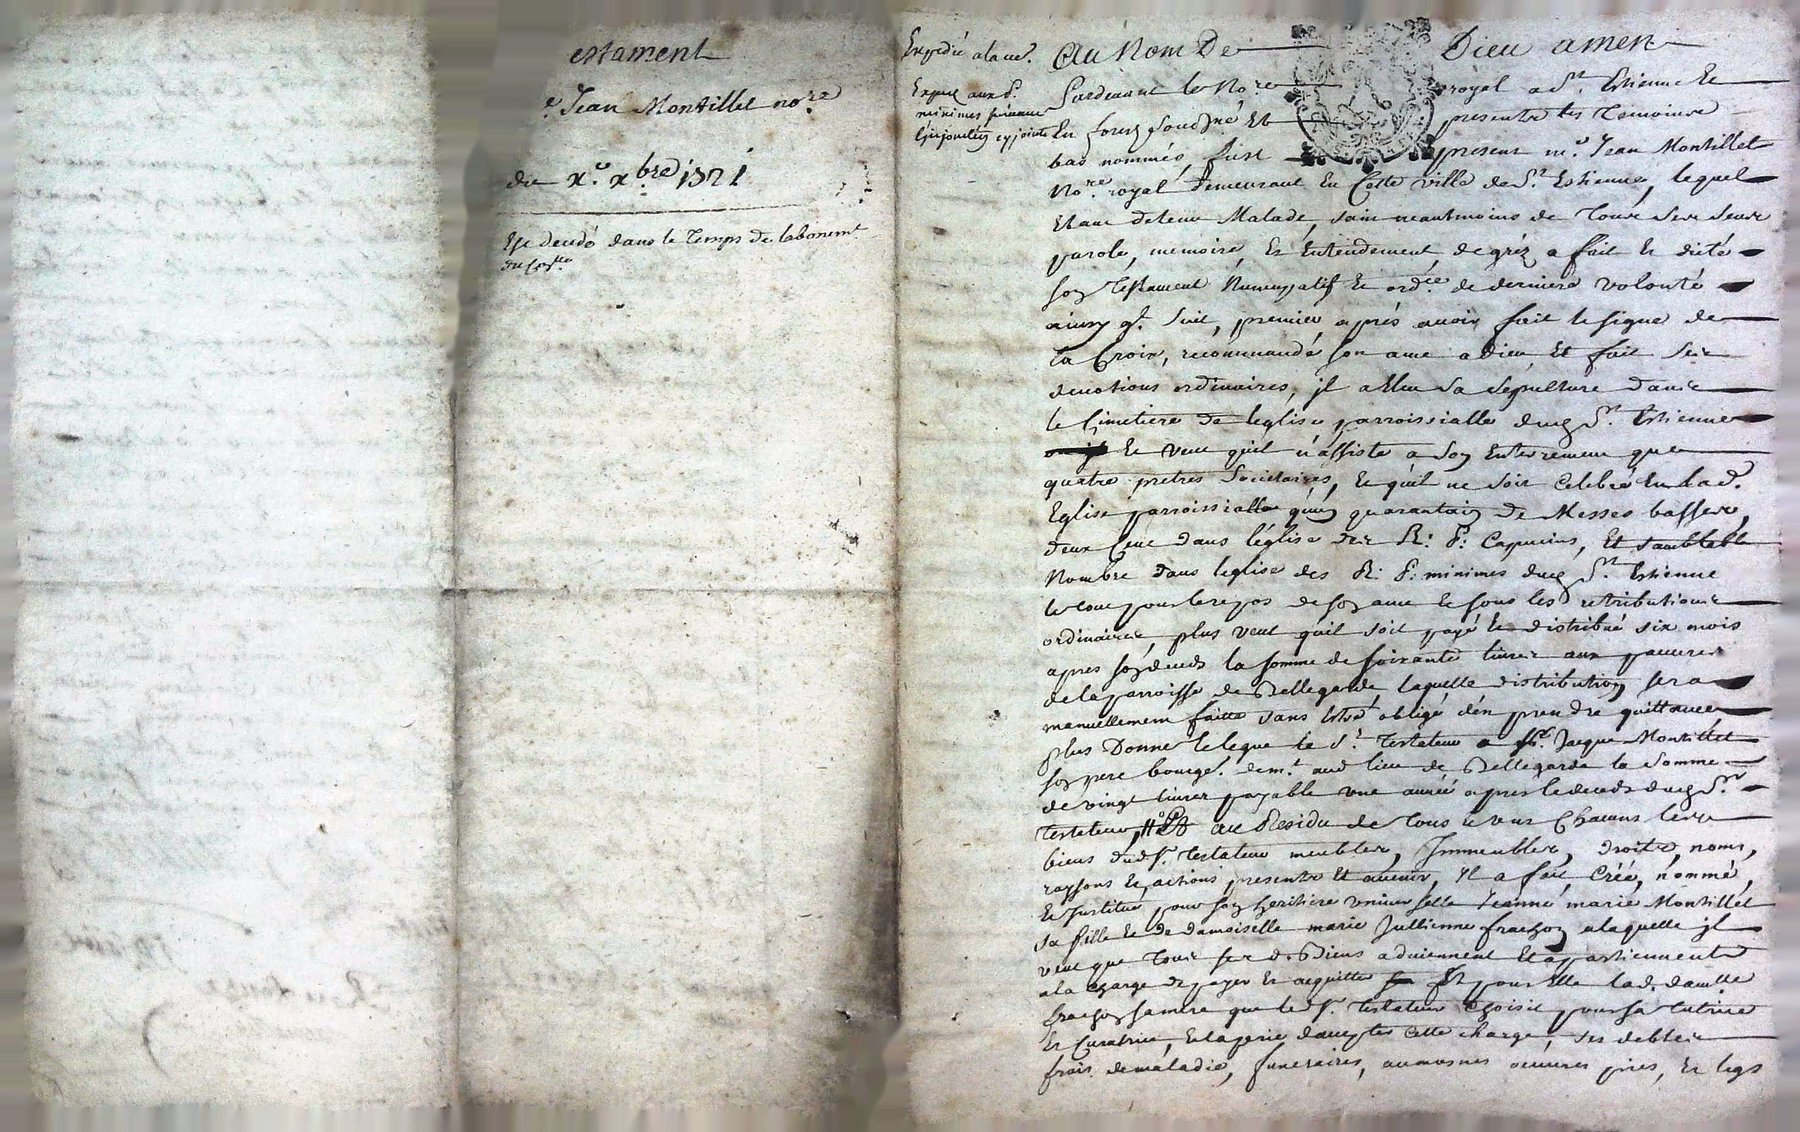 estament
Jean Montillet no.re
du x.e xbre 1721
Est decedé dans le Temps de labonemt
Expedié a la ve.
Expié aux P.
minimes suivant
l'injonction cy jointe
Au Nom De Dieu amen
Pardevant le No.re royal a St. Estienne Et
En forez soussigné Et presents les Temoins
bas nommés, fust present me. Jean Montillet
No.re royal demeurant En Cette ville de St. Estienne, lequel
Etant detenu Malade, sain neantmoins de Tous ses sens
parole, memoire, Et Entendement, de gréz a fait Et dicté
son Testament Nuncupatif Et ord.ce de derniere volonté
ainsy qt. suit, premier apres avoir fait le signe de
la Croix, recommandé son ame a Dieu Et fait ses
devotions ordinaires, jl a Eleu sa sepulture dans
le Cimetiere de leglise parroissialle dud St. Estienne
Et veut quil n'assiste a son Enterrement que
quatre pretres societaires, Et quil ne soit Celebré En lad.
Eglise parroissialle quun quarantain de Messes basses,
deux Cent dans l'église des R. P. Capucins, Et samblable
Nombre dans leglise des R. P. minimes dud St. Estienne
le tout pour le repos de son ame Et sous les retributions
ordinaires, plus veut quil soit payé Et distribué six mois
apres son deceds la somme de soixante livres aux pauvres
de la parroisse de Bellegarde, laquelle distribution sera
manuellement faitte sans Estre obligé d'en prendre quittance
plus Donne Et legue le Sr. Testateur a Sr. Jacque Montillet
son pere bourgs. demt. aud lieu de Bellegarde la Somme
de vingt livres payable une année apres le deceds dud Sr.
Testateur, Et Au Residu de Tous Et uns Chacuns les
biens dud Sr. Testateur meubles, Jmmeubles, droits, noms,
raysons Et actions presents Et avenir, Jl a fait Créé, nommé,
Et Jnstitué pour son heritiere universelle Jeanne marie Montillet
sa fille Et de damoiselle marie Jullienne frachon a laquelle jl
veut que Tous ses d. Biens adviennent Et apartiennent
a la Charge de payer Et acquitter Et pour Elle lad. damlle
frachon sa mere que led Sr. Testateur Choisit pour sa Tutrice
Et Curatrice, Et la prie d'accepter Cette charge, ses debtes
frais de maladie, funeraires, aumosnes oeuvres pies, Et legs